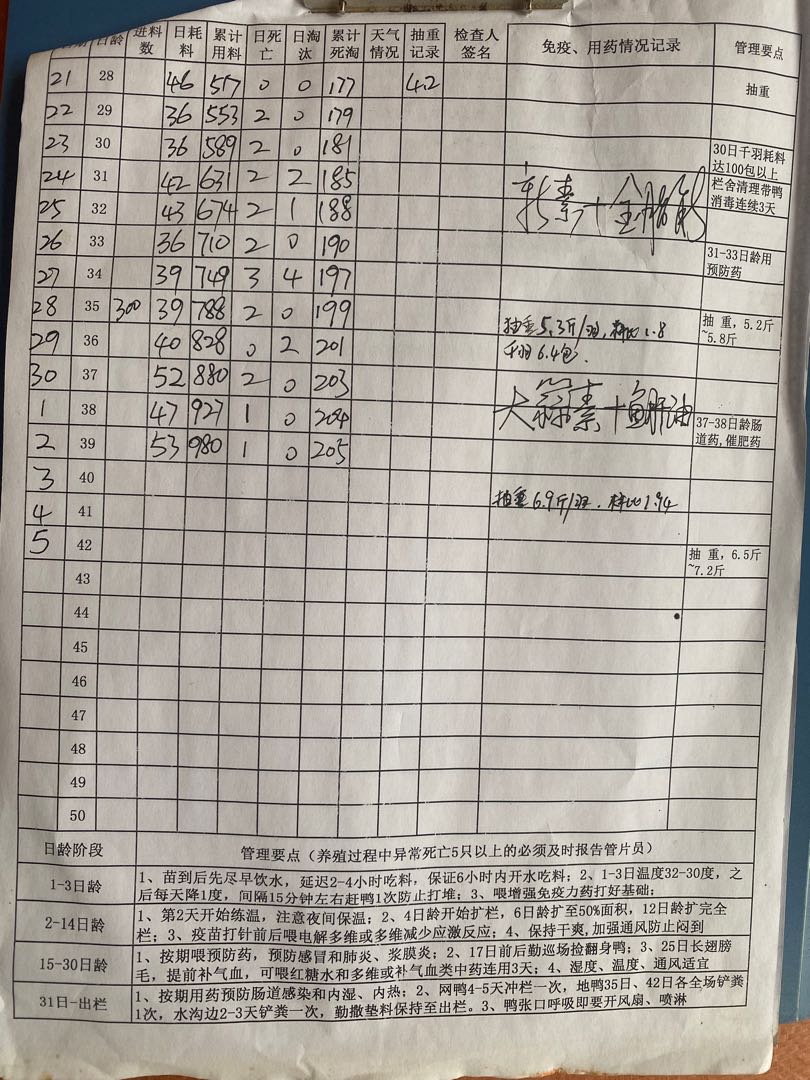 日龄 进料数 日耗料 累计用料 日死亡 日淘汰 累计死淘 天气情况 抽重记录 检查人签名 免疫、用药情况记录 管理要点
21 28 46 517 0 0 177 4.2 抽重
22 29 36 553 2 0 179
23 30 36 589 2 0 181 30日千羽耗料达100包以上
24 31 42 631 2 2 185 栏舍清理带鸭消毒连续3天
25 32 43 674 2 1 188
26 33 36 710 2 0 190 31-33日龄用预防药
27 34 39 749 3 4 197
28 35 300 39 788 2 0 199 抽重5.3斤/羽,料比1.8 抽 重,5.2斤~5.8斤
29 36 40 828 0 2 201 千羽6.4包.
30 37 52 880 2 0 203 大蒜素+鱼肝油
1 38 47 927 1 0 204 37-38日龄肠道药,催肥药
2 39 53 980 1 0 205
3 40
4 41 抽重6.9斤/羽.料比1.94
5 42 抽 重,6.5斤~7.2斤
43
44
45
46
47
48
49
50
日龄阶段 管理要点（养殖过程中异常死亡5只以上的必须及时报告管片员）
1-3日龄 1、苗到后先尽早饮水，延迟2-4小时吃料，保证6小时内开水吃料；2、1-3日温度32-30度，之
后每天降1度，间隔15分钟左右赶鸭1次防止打堆；3、喂增强免疫力药打好基础；
2-14日龄 1、第2天开始练温，注意夜间保温；2、4日龄开始扩栏，6日龄扩至50%面积，12日龄扩完全
栏；3、疫苗打针前后喂电解多维或多维减少应激反应；4、保持干爽,加强通风防止闷到
15-30日龄 1、按期喂预防药，预防感冒和肺炎、浆膜炎；2、17日前后勤巡场捡翻身鸭；3、25日长翅膀
毛，提前补气血，可喂红糖水和多维或补气血类中药连用3天；4、湿度、温度、通风适宜
31日-出栏 1、按期用药预防肠道感染和内湿、内热；2、网鸭4-5天冲栏一次，地鸭35日、42日各全场铲粪
1次，水沟边2-3天铲粪一次，勤撒垫料保持至出栏。3、鸭张口呼吸即要开风扇、喷淋